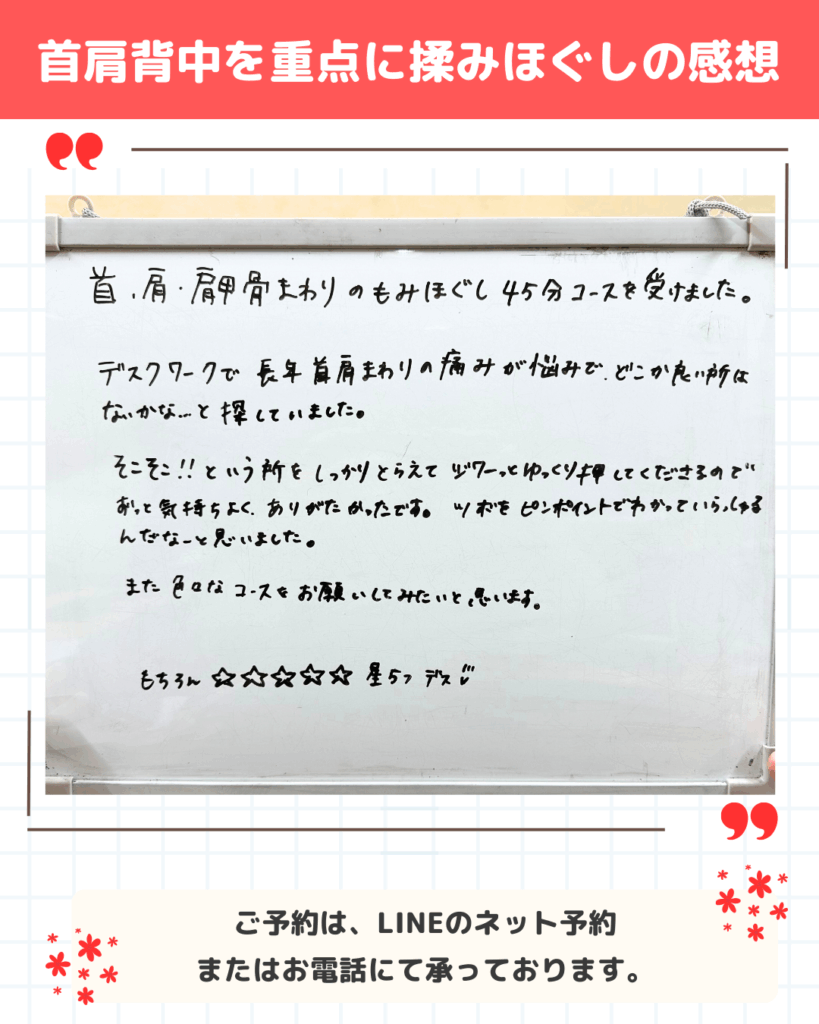 首肩背中を重点に揉みほぐしの感想
首、肩・肩甲骨まわりのもみほぐし45分コースを受けました。
デスクワークで長年首肩まわりの痛みが悩みで、どこか良い所は
ないかな…と探していました。
そこそこ!!という所をしっかりとらえてジワーっとゆっくり押してくださるので
ずっと気持ちよく、ありがたかったです。ツボをピンポイントでわかっていらっしゃる
んだなーと思いました。
また色々なコースをお願いしてみたいと思います。
もちろん☆☆☆☆☆星5つデス
ご予約は、LINEのネット予約
またはお電話にて承っております。